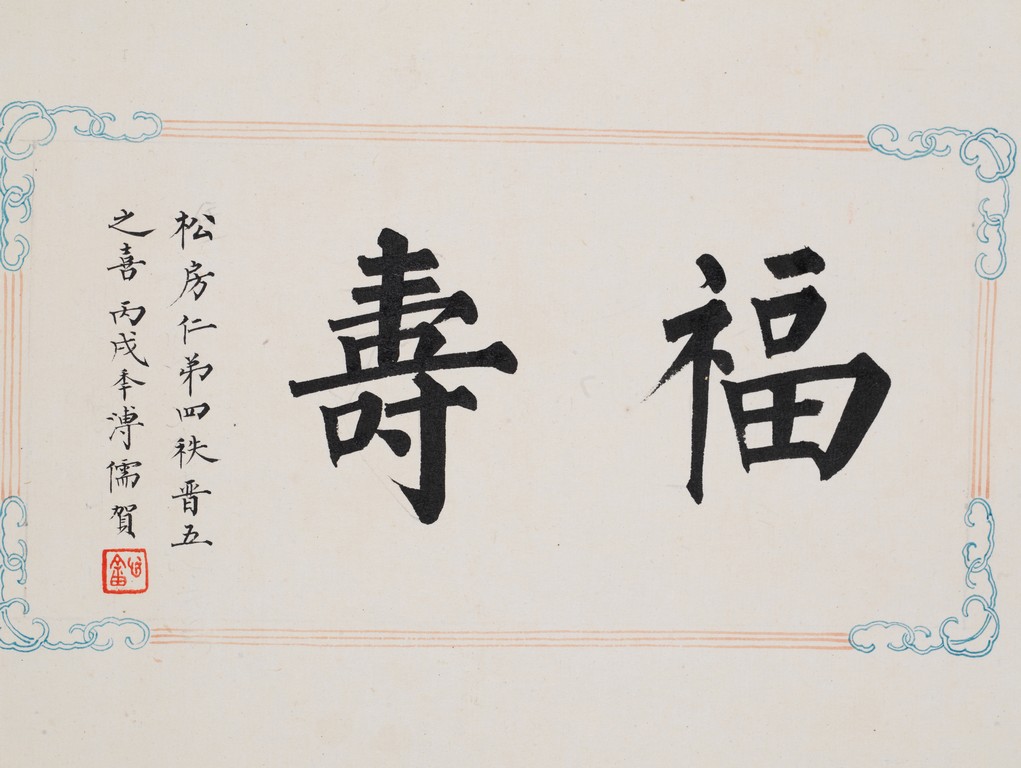 福壽
松房仁弟四秩晋五
之喜 丙戌季溥儒賀